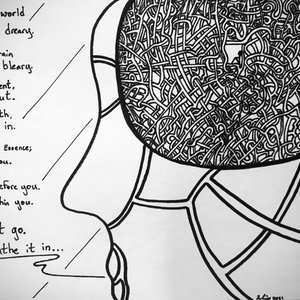 world
dreary,
ain
bleary.
ent,
ut.
th,
in.
Essence;
ou.
efore you.
hin you.
t go.
athe it in...